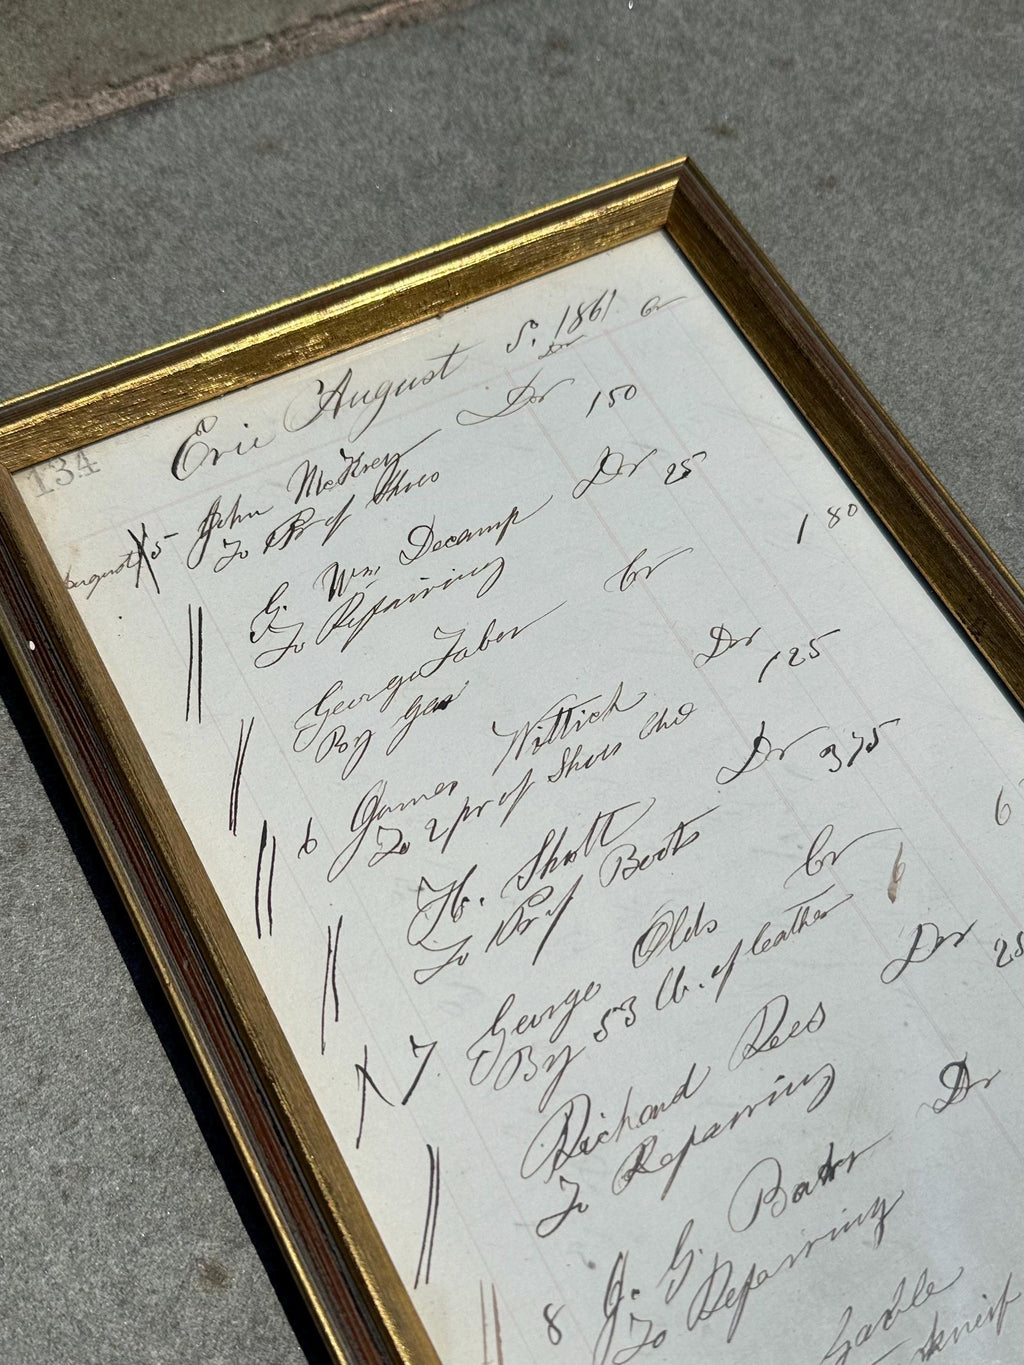 134
Erie August 5. 1861
Dr Cr
August 5 John McKrey Dr 150
To 1 Pr of Shoes
G. Wm. Decamp Dr 25
To Repairing
George Taber Cr 1 80
By Gas
6 James Wittich Dr 125
To 2 pr of Shoes
H. Shott Dr 375
To 1 Pr of Boots
7 George Olds Cr 6
By 53 lb. of leather
Richard Rees Dr 25
To Repairing
8 J. G. Baker Dr
To Repairing